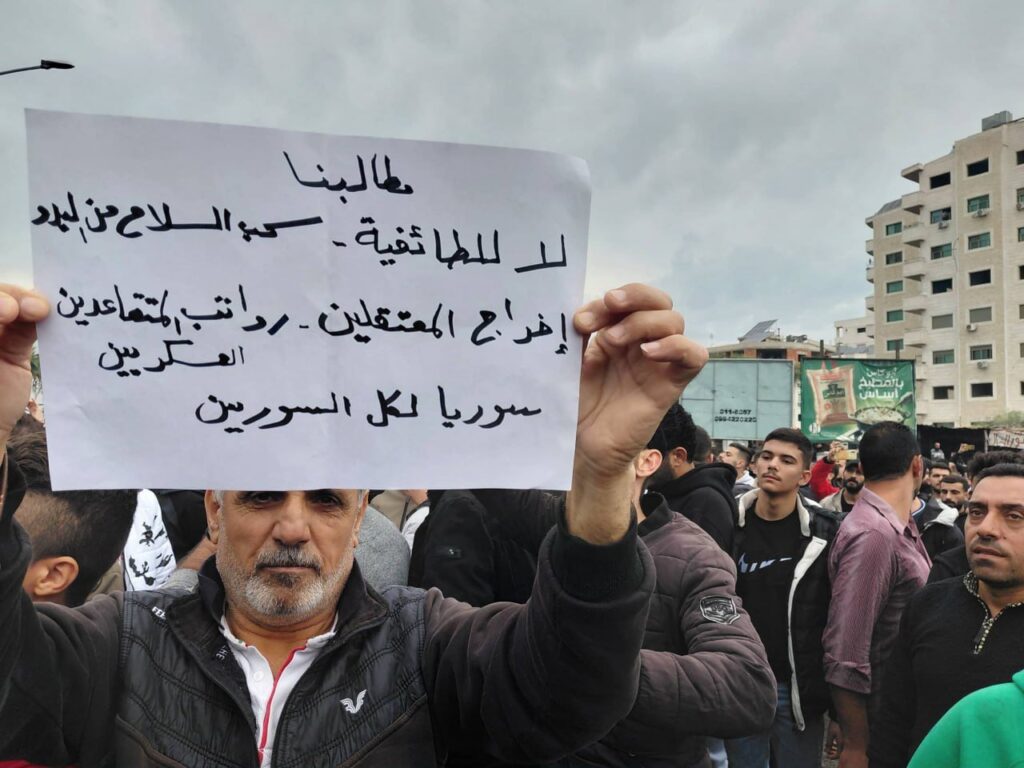 مطالبنا
لا للطائفية - سحب السلاح من البدو
إخراج المعتقلين - رواتب المتقاعدين
العسكريين
سوريا لكل السوريين
بالمطبخ
أساس